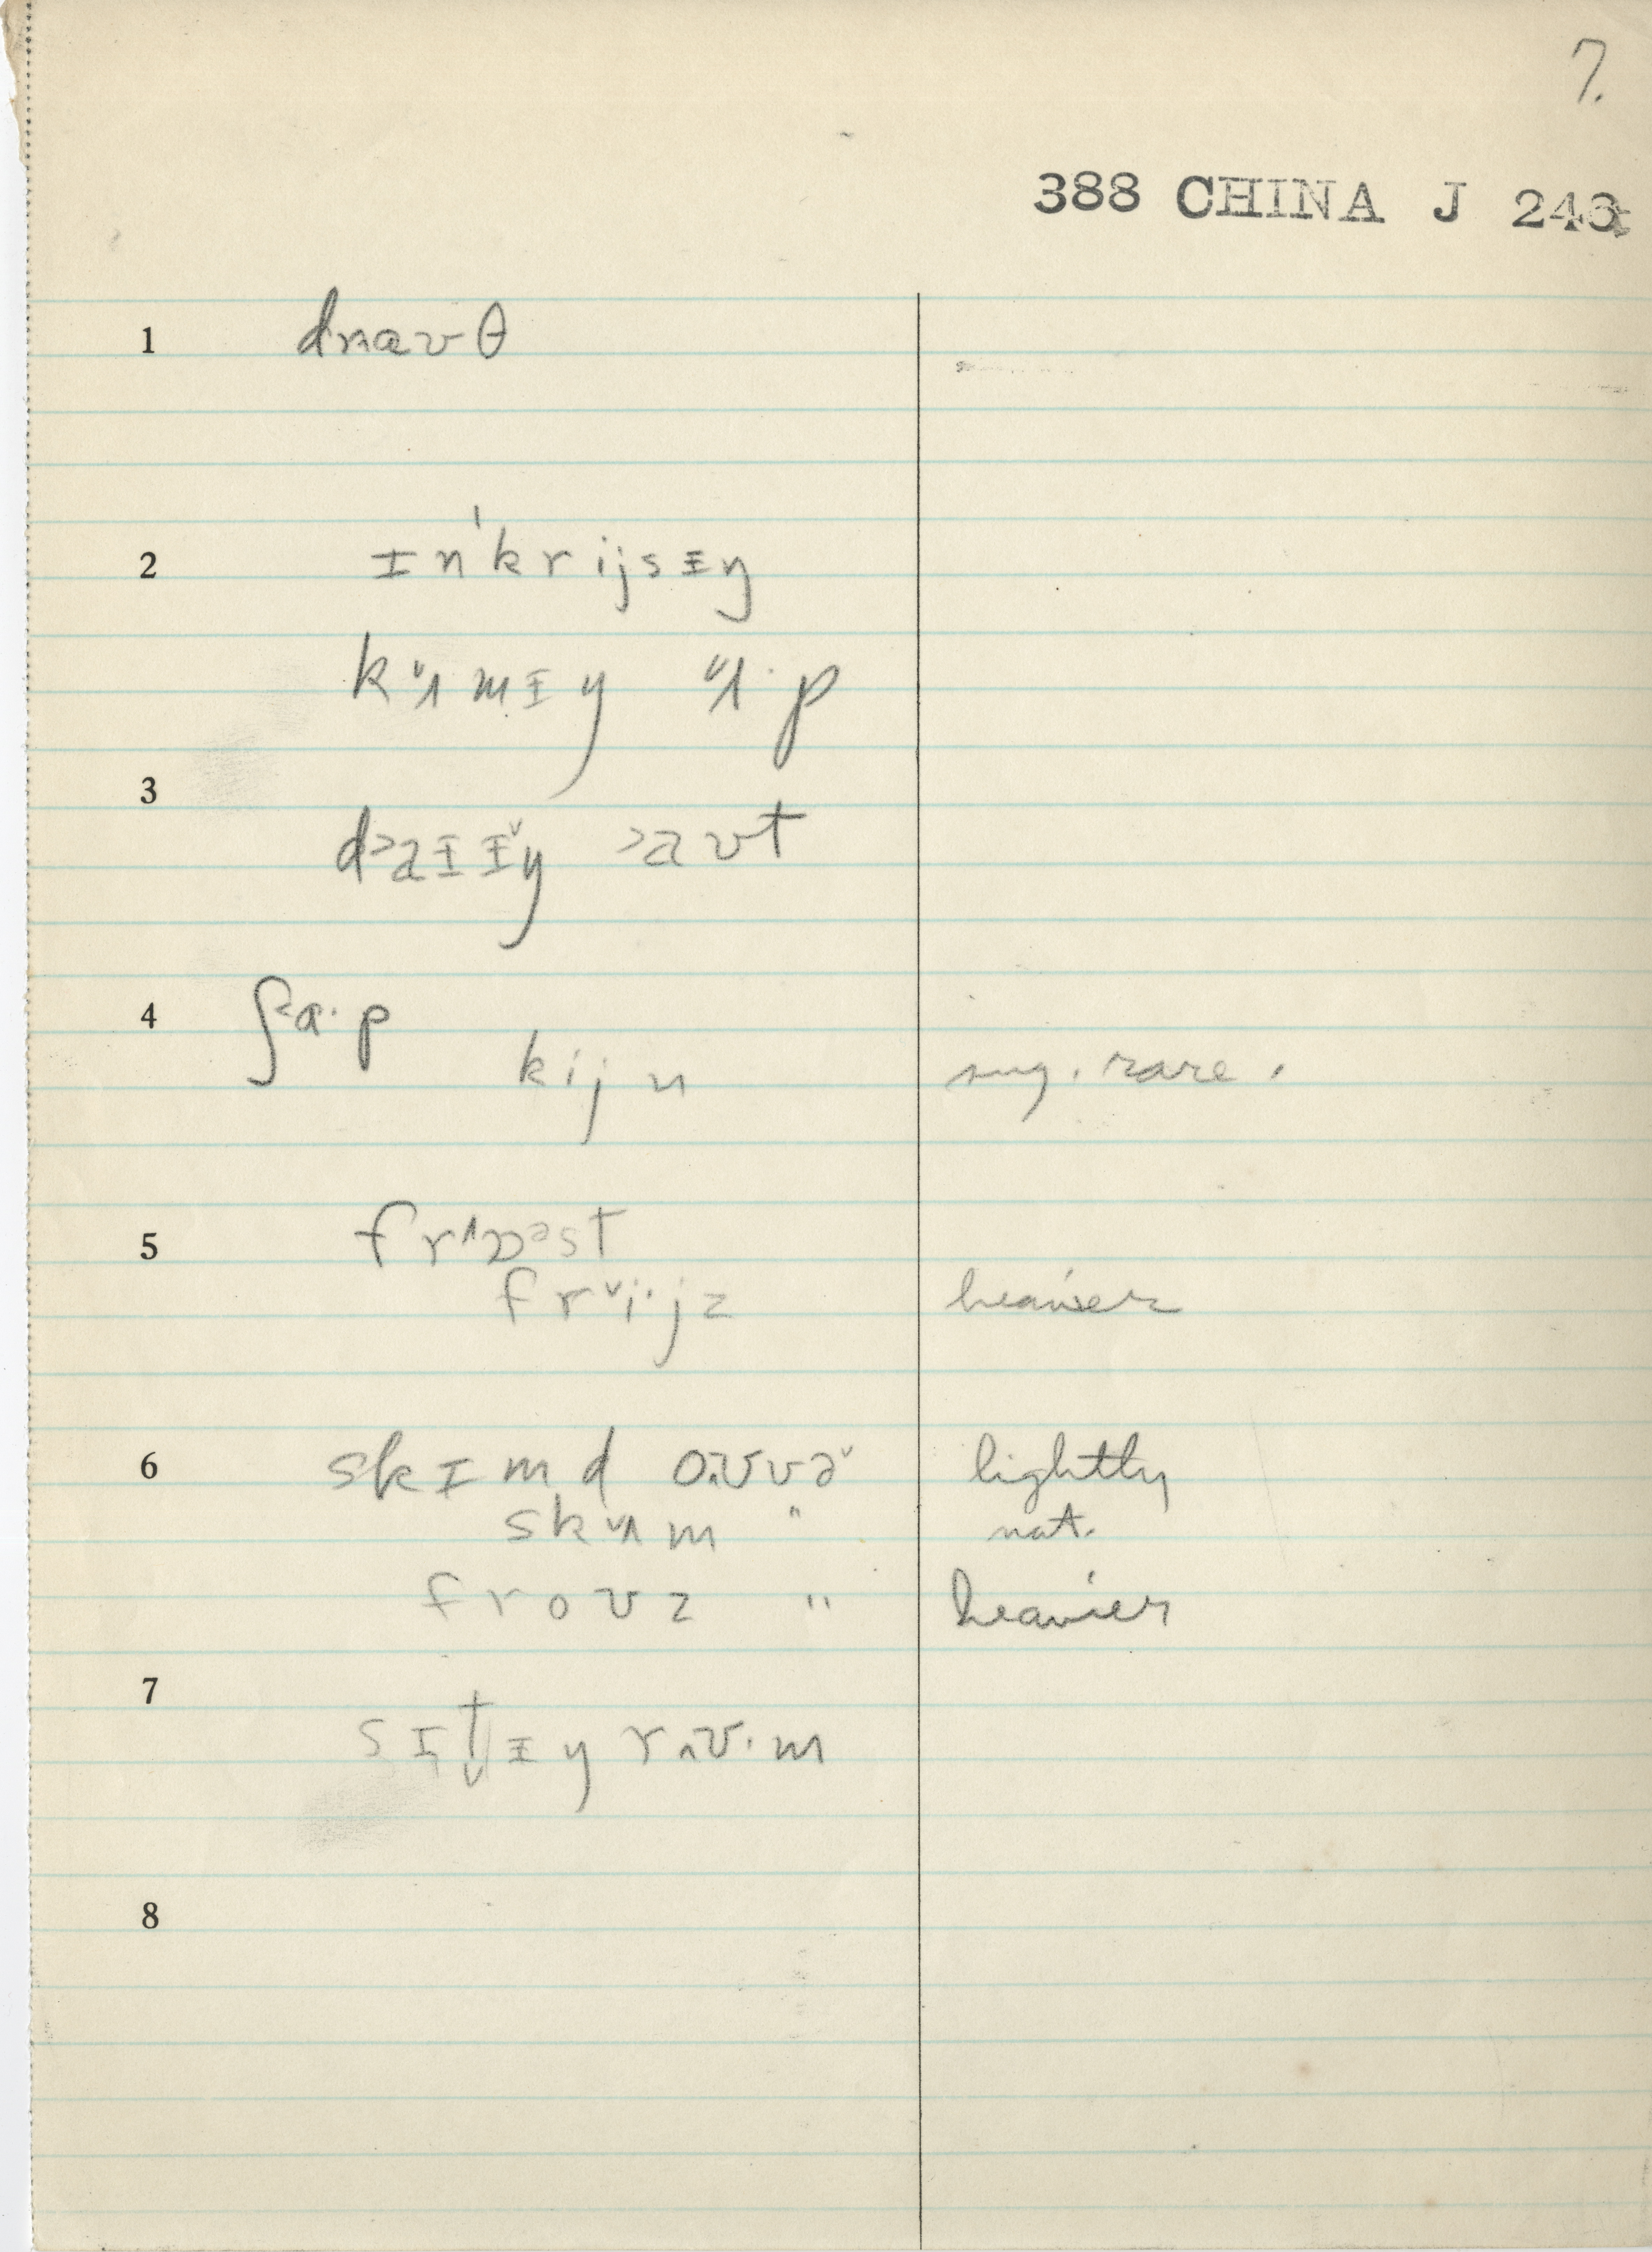 7.
388 CHINA J 246
1 drɑʊθ
2 ɪn'krijsɨŋ
kʌmɨŋ ʌ·p
3
d˃aɪɨ̌ŋ ˃aʊt
4 ʃ˂ɑ·p
kijn sug. rare.
5 frɒᵊst
frˇi·jz heavier
6 skɪmd oʊvə̌ lightly
skʌm " nat.
froʊz " heavier
7
sɪt̬ɨŋ rʊ·m
8